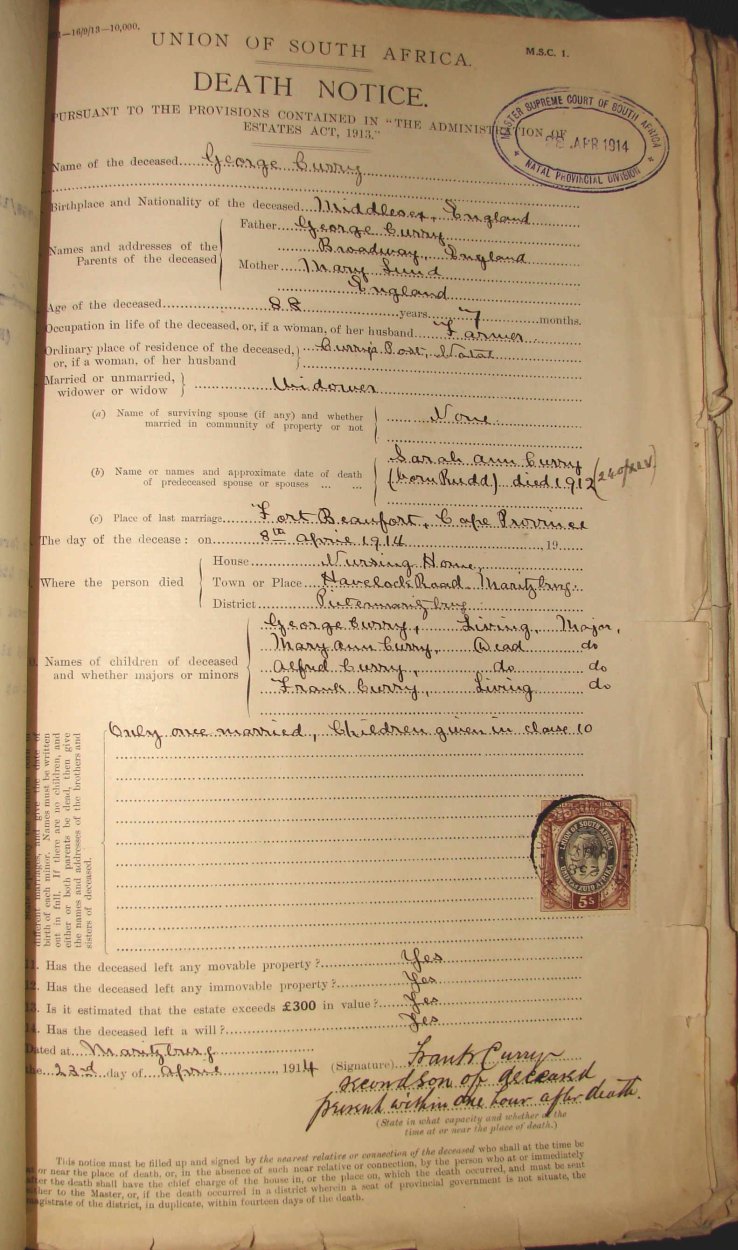 1—16/9/13—10,000.
UNION OF SOUTH AFRICA.
M.S.C. 1.
DEATH NOTICE.
PURSUANT TO THE PROVISIONS CONTAINED IN "THE ADMINISTRATION OF
ESTATES ACT, 1913."
MASTER SUPREME COURT OF SOUTH AFRICA
APR 1914
NATAL PROVINCIAL DIVISION
Name of the deceased George Curry
Birthplace and Nationality of the deceased Middlesex, England
Names and addresses of the Parents of the deceased
Father George Curry
Broadway, England
Mother Mary Lund
England
Age of the deceased 88 years 7 months.
Occupation in life of the deceased, or, if a woman, of her husband Farmer
Ordinary place of residence of the deceased, or, if a woman, of her husband Curry's Post, Natal
Married or unmarried, widower or widow Widower
(a) Name of surviving spouse (if any) and whether married in community of property or not None
(b) Name or names and approximate date of death of predeceased spouse or spouses ... ...
Sarah Ann Curry
(born Rudd) died 1912
(c) Place of last marriage Fort Beaufort, Cape Province
The day of the decease: on 8th April 1914, 19
Where the person died
House Nursing Home
Town or Place Havelock Road Maritzburg.
District Pietermaritzburg
Names of children of deceased and whether majors or minors
George Curry, Living, Major,
Mary Ann Curry, Dead do
Alfred Curry, do do
Frank Curry, Living do
Only once married, Children given in clause 10
different marriages, and give the date of
birth of each minor. Names must be written
out in full. If there are no children, and
either or both parents be dead, then give
the names and addresses of the brothers and
sisters of deceased.
UNION OF SOUTH AFRICA
5s
11. Has the deceased left any movable property? Yes
12. Has the deceased left any immovable property? Yes
13. Is it estimated that the estate exceeds £300 in value? Yes
14. Has the deceased left a will? Yes
Dated at Maritzburg
the 23rd day of April, 1914
(Signature) Frank Curry
second son of deceased
present within one hour after death.
(State in what capacity and whether at the
time at or near the place of death.)
This notice must be filled up and signed by the nearest relative or connection of the deceased who shall at the time be
at or near the place of death, or, in the absence of such near relative or connection, by the person who at or immediately
after the death shall have the chief charge of the house in, or the place on, which the death occurred, and must be sent
either to the Master, or, if the death occurred in a district wherein a seat of provincial government is not situate, the
magistrate of the district, in duplicate, within fourteen days of the death.